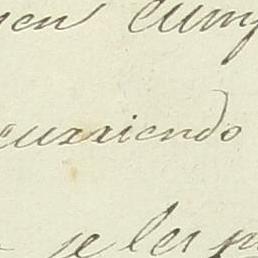 en cump
curriendo
se les p